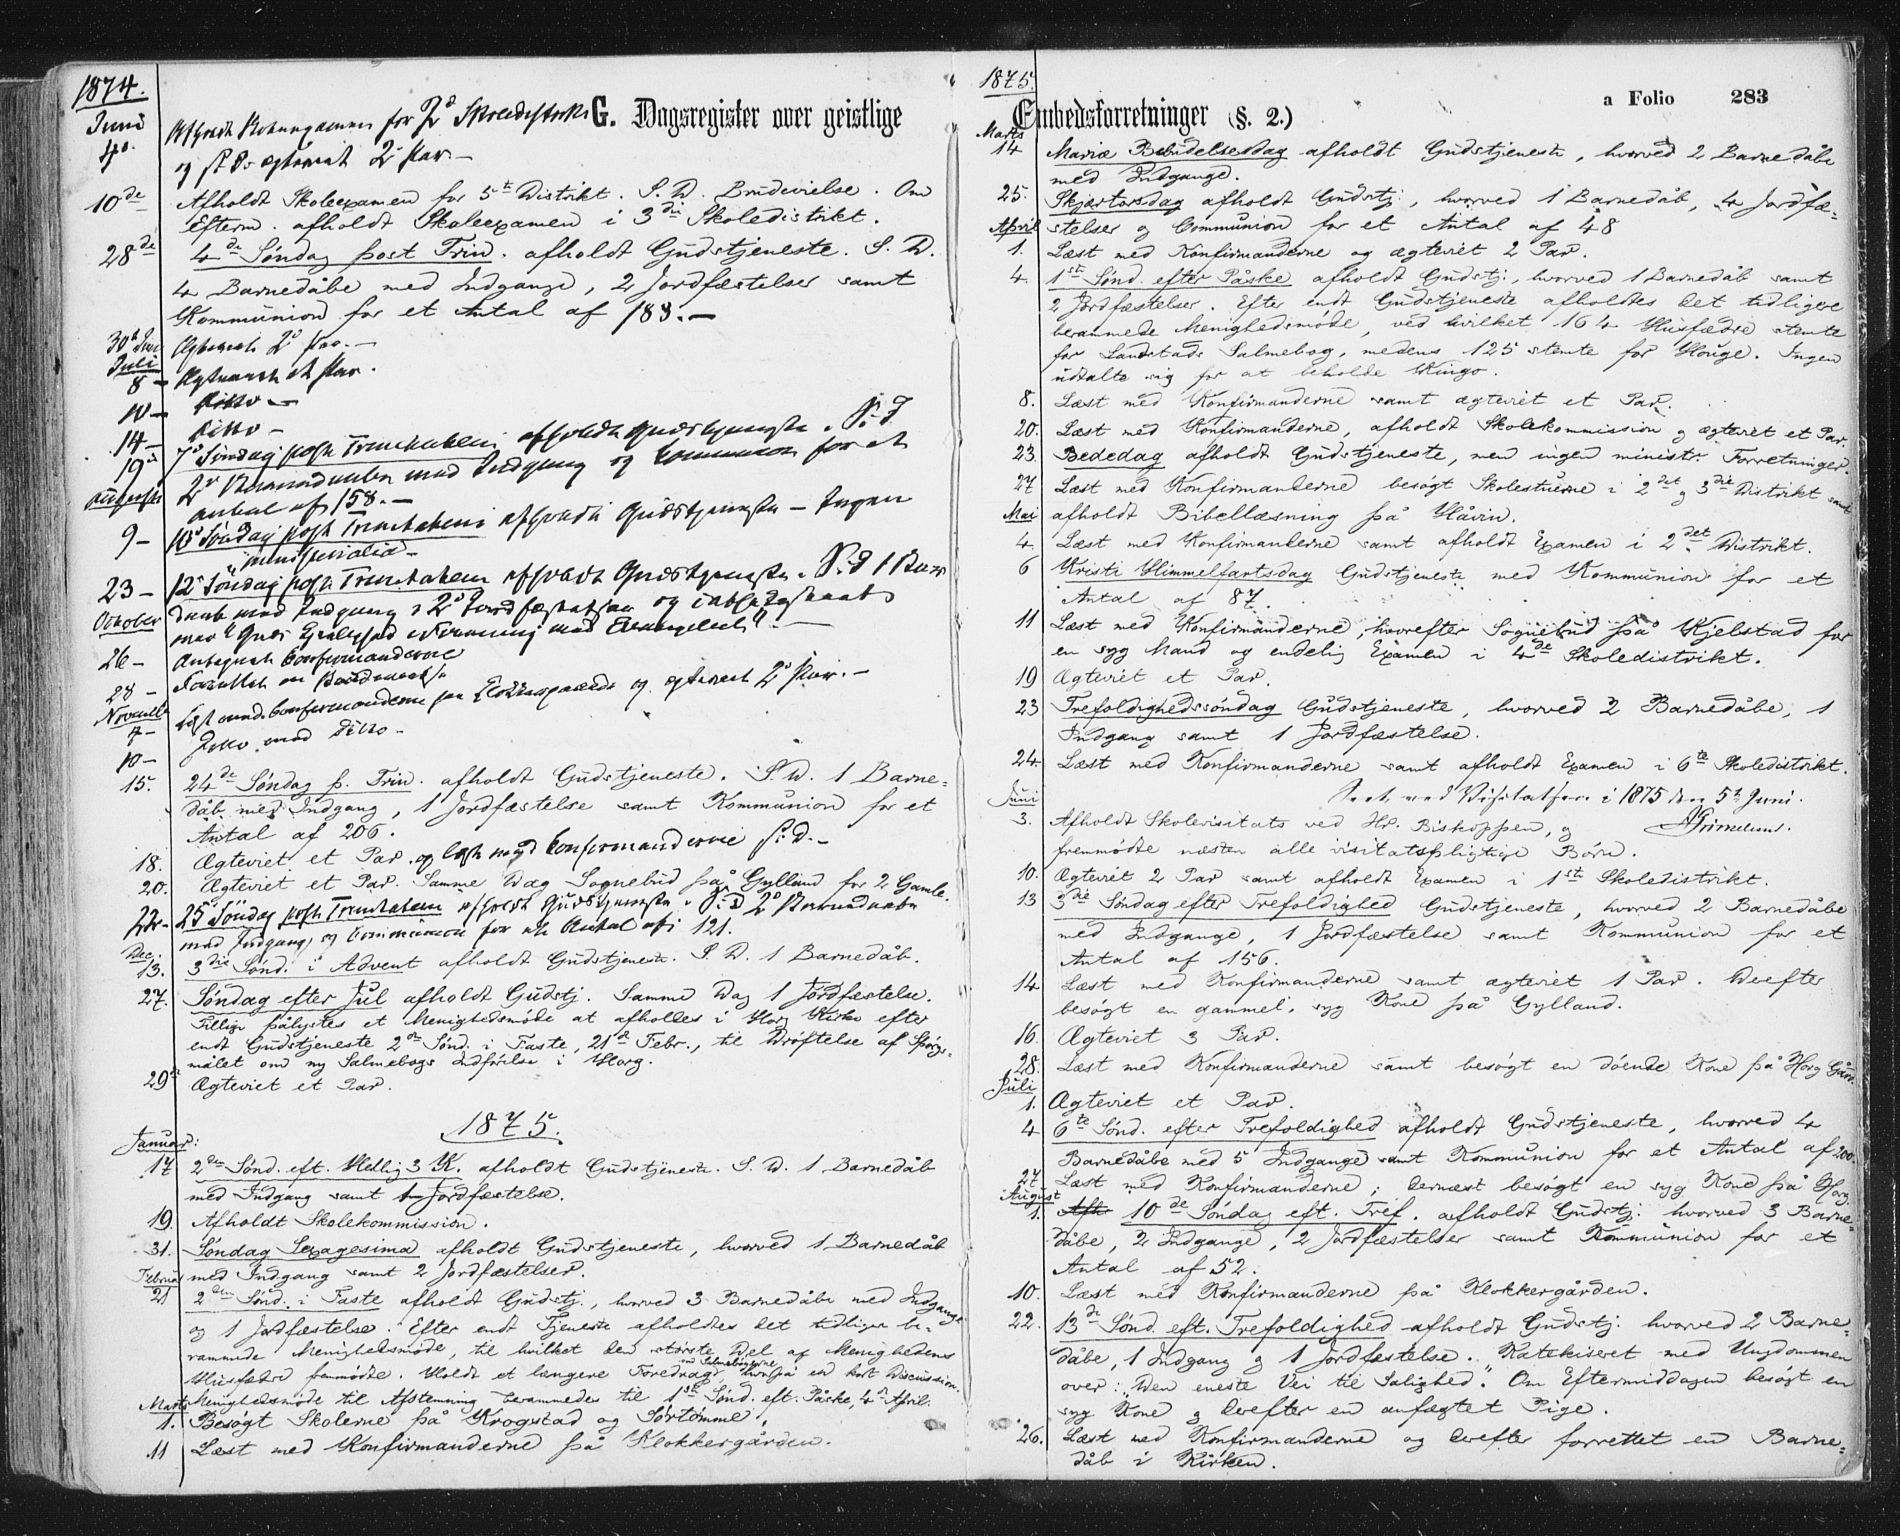 1874.
G. Dagsregister over geistlige
Juni
4de
og S. D. ægteviet 2 Par. —
10de Afholdt Skoleexamen for 5te Distrikt. S. D. Brudevielse. Om
Efterm. afholdt Skoleexamen i 3die Skoledistrikt.
28de 4de Søndag post Trin. afholdt Gudstjeneste. S. D.
4 Barnedåbe med Indgange, 2 Jordfæstelser samt
Kommunion for et Antal af 188. —
30te Juni Ægteviet 2 Par. —
Juli
8 — Ægteviet et Par.
10 — Ditto —
14 — Ditto —
19de 7de Søndag post Trinitatem afholdt Gudstjeneste. S. D
2de Barnedaabe med Indgang og Communion for et
Antal af 158. —
August
9 — 10de Søndag post Trinitatem afholdt Gudstjeneste — Ingen
ministerialia —
23 — 12te Søndag post Trinitatem afholdt Gudstjeneste. S. D 1 Barne
daab med Indgang, 2de Jordfæstelser og
October
26 — Antegnet Confirmanderne
28 — Forrettet en
November
7 — Læst med Confirmanderne paa Klokkergaarden og ægteviet 2de Par. —
10 — Ditto med Ditto —
15. 24de Søndag p. Trin. afholdt Gudstjeneste. S. D. 1 Barne=
dåb med Indgang, 1 Jordfæstelse samt Kommunion for et
Antal af 206.
18. Ægteviet et Par. og læst med Confirmanderne S. D. —
20. Ægteviet et Par. Samme Dag Sognebud på Gylland for 2 Gamle.
22 — 25 Søndag post Trinitatem afholdt Gudstjeneste. S. D 2de Barnedaabe
med Indgang, og Communion for et Antal af 121.
Dec.
13. 3die Sønd. i Advent afholdt Gudstjeneste. S. D. 1 Barnedåb.
27. Søndag efter Jul afholdt Gudstj. Samme Dag 1 Jordfæstelse.
Tillige pålystes et Menighedsmøde at afholdes i Horg Kirke efter
endt Gudstjeneste 2den Sønd. i Faste, 21de Febr., til Drøftelse af Spørgs=
målet om ny Salmebogs Indførelse i Horg.
29de Ægteviet et Par.
1875.
Januar:
17 2den Sønd. eft. Hellig 3 K. afholdt Gudstjeneste. S. D. 1 Barnedåb
med Indgang samt Jordfæstelse.
19. Afholdt Skolekommission.
31. Søndag Sexagesima afholdt Gudstjeneste, hvorved 1 Barnedåb
Februar med Indgang samt 2 Jordfæstelser.
21 2den Sønd. i Faste afholdt Gudstj., hvorved 3 Barnedåbe med Indgange
og 1 Jordfæstelse. Efter endt Tjeneste afholdtes det tidligere be=
rammede Menighedsmøde, til hvilket den største Del af Menighedens
Husfædre fremmødte. Holdt et længere Foredrag om Salmebøgerne, hvorpå en kort Discussion.
Menighedsmøde til Afstemning berammedes til 1ste Sønd. eft. Påske, 4de April.
Marts
1. Besøgt Skolerne på Krogstad og Sørtømme.
11 Læst med Konfirmanderne på Klokkergården.
1875.
Embedsforretninger (§. 2.)
a Folio 283
Marts
14 Mariæ Bebudelsesdag afholdt Gudstjeneste, hvorved 2 Barnedåbe
med Indgange.
25. Skjærtorsdag afholdt Gudstj., hvorved 1 Barnedåb, 4 Jordfæ=
April stelser og Communion for et Antal af 48
1. Læst med Konfirmanderne og ægteviet 2 Par.
4. 1ste Sønd. efter Påske afholdt Gudstj., hvorved 1 Barnedåb samt
2 Jordfæstelser. Efter endt Gudstjeneste afholdtes det tidligere
berammede Menighedsmøde, ved hvilket 164 Husfædre stemte
for Landstads Salmebog, medens 125 stemte for Hauge. Ingen
udtalte sig for at beholde Kingo.
8. Læst med Konfirmanderne samt ægteviet et Par.
20. Læst med Konfirmanderne, afholdt Skolekommission og ægteviet et Par.
23. Bededag afholdt Gudstjeneste, men ingen ministr. Forretninger.
27 Læst med Konfirmanderne besøgt Skolestuerne i 2det og 3die Distrikt samt
Mai afholdt Bibellæsning på Håvin.
4. Læst med Konfirmanderne samt afholdt Examen i 2det Distrikt.
6 Kristi Himmelfartsdag Gudstjeneste med Kommunion for et
Antal af 87.
11 Læst med Konfirmanderne, hvorefter Sognebud på Kjelstad for
en syg Mand og endelig Examen i 4de Skoledistrikt.
19 Ægteviet et Par.
23 Trefoldighedssøndag Gudstjeneste, hvorved 2 Barnedåbe, 1
Indgang samt 1 Jordfæstelse.
24. Læst med Konfirmanderne samt afholdt Examen i 6te Skoledistrikt.
Seet ved Visitatsen i 1875 den 5te Juni.
Grimelund.
Juni
3. Afholdt Skolevisitats ved Hr. Biskoppen, og
fremmødte næsten alle visitatspligtige Børn.
10. Ægteviet 2 Par samt afholdt Examen i 1ste Skoledistrikt.
13 3die Søndag efter Trefoldighed Gudstjeneste, hvorved 2 Barnedåbe
med Indgange, 1 Jordfæstelse samt Kommunion for et
Antal af 156.
14 Læst med Konfirmanderne samt ægteviet 1 Par. Derefter
besøgt en gammel, syg Kone på Gylland.
16. Ægteviet 3 Par.
28. Læst med Konfirmanderne samt besøgt en døende Kone på Horg Gård.
Juli
1. Ægteviet et Par.
4 6te Sønd. efter Trefoldighed afholdt Gudstjeneste, hvorved 4
Barnedåbe med 5 Indgange samt Kommunion for et Antal af 200.
27. Læst med Konfirmanderne; dernæst besøgt en syg Kone på Horg.
August
1. Afh. 10de Søndag eft. Tref. afholdt Gudstj. hvorved 3 Barne=
dåbe, 2 Indgange, 2 Jordfæstelser samt Kommunion for et
Antal af 52.
10. Læst med Konfirmanderne på Klokkergården.
22. 13de Sønd. eft. Trefoldighed afholdt Gudstj. hvorved 2 Barne=
dåbe, 1 Indgang og 1 Jordfæstelse. Katekiseret med Ungdommen
over: "Den eneste Vei til Salighed." Om Eftermiddagen besøgt en
syg Kone og derefter en anfægtet Pige.
26. Læst med Konfirmanderne og derefter forrettet en Barne=
dåb i Kirken.